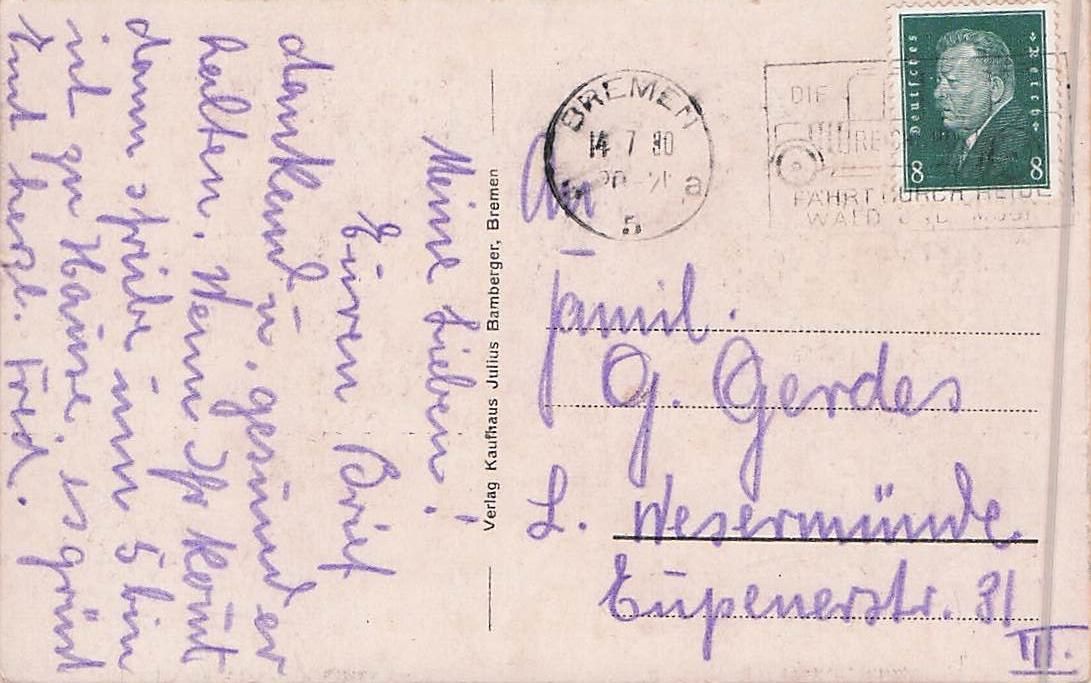 Meine Lieben!
Euren Brief
dankend u. gesund er
halten. Wenn Ihr kommt
dann spielt um 5 bin
ich zu Hause, es grüsst
Euch herzl. Fried.
Verlag Kaufhaus Julius Bamberger, Bremen
BREMEN
14 7 30
20-21
a
5
DIE
FAHRT DURCH HEIDE
WALD UND MOOR
Deutsches Reich
8 8
An
Famil.
G. Gerdes
L. Wesermünde
Eupenerstr. 31
III.